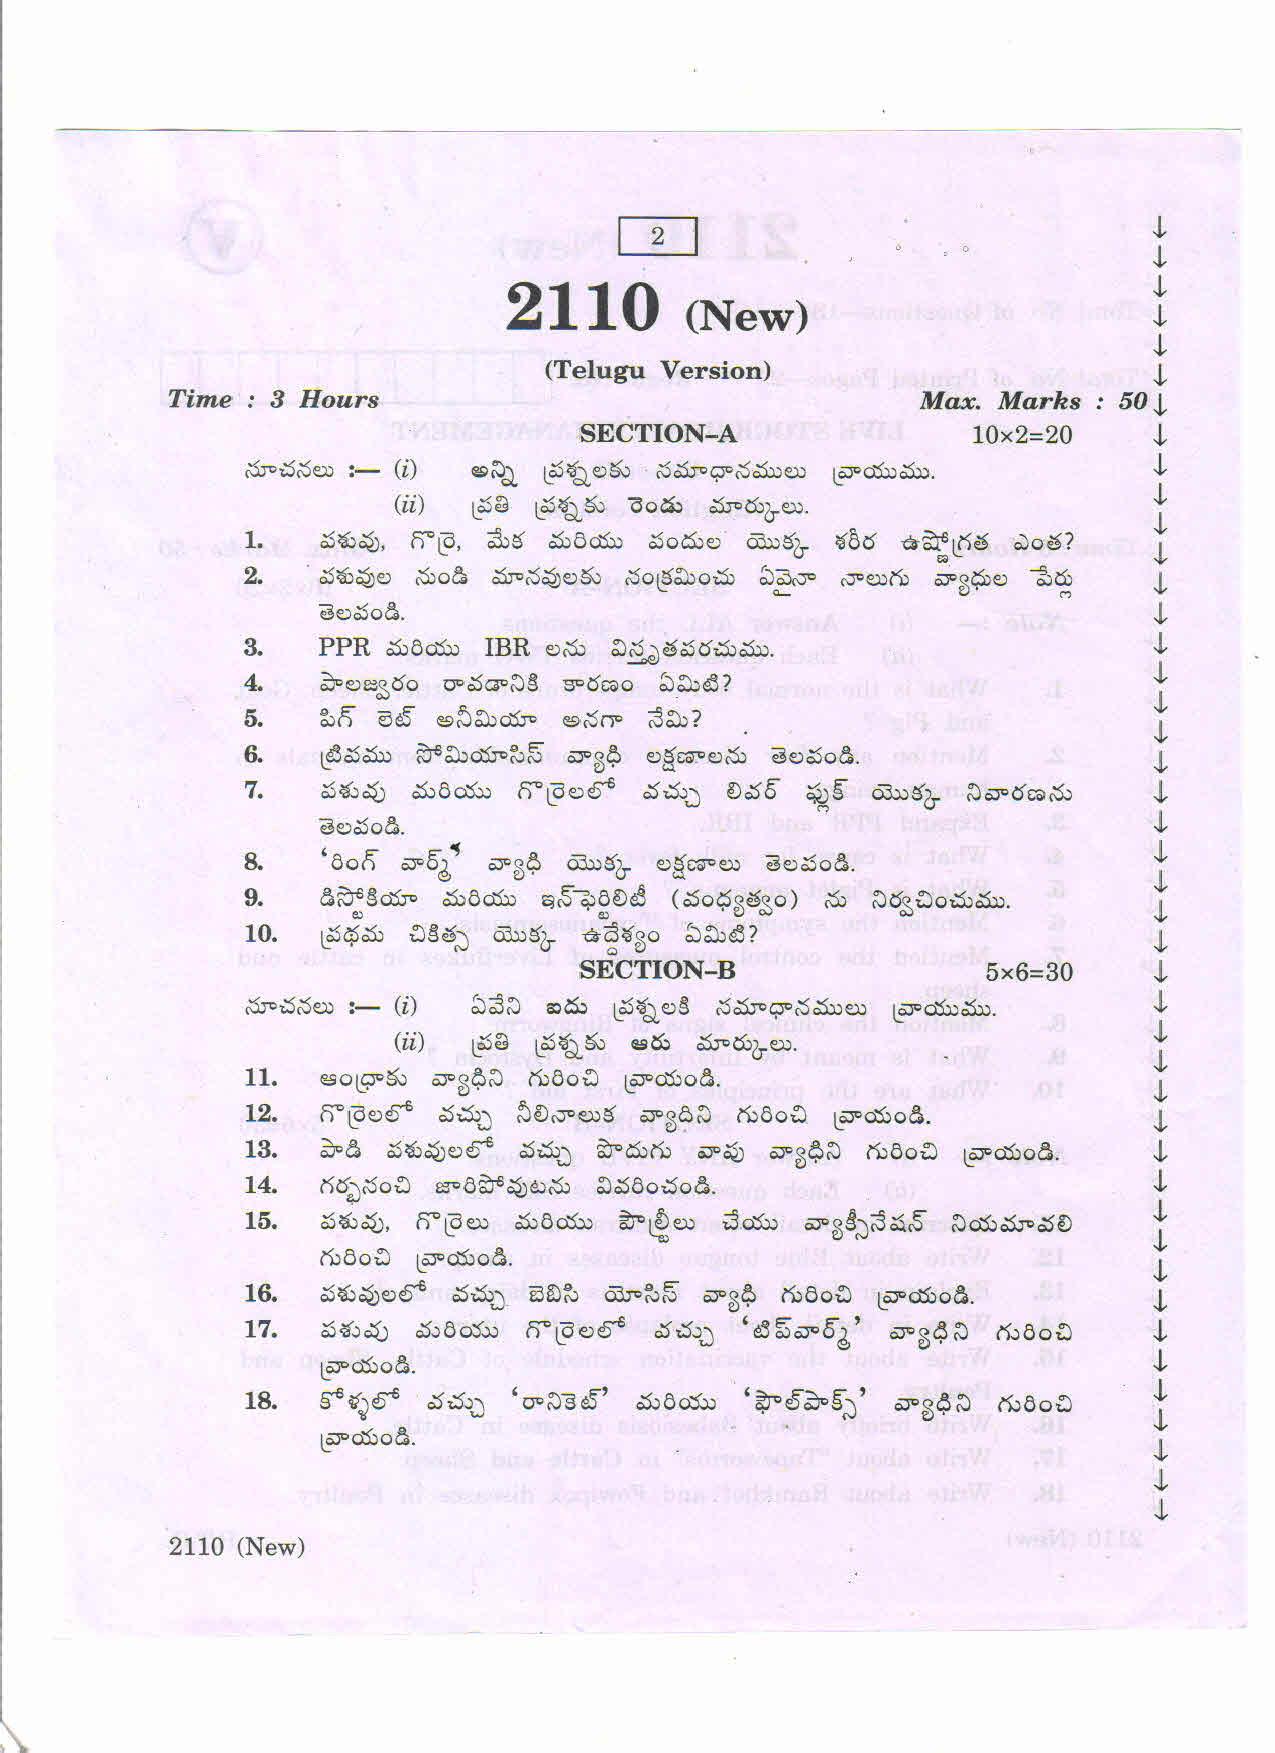 2
2110 (New)
(Telugu Version)
Time : 3 Hours Max. Marks : 50
SECTION–A 10×2=20
సూచనలు :— (i) అన్ని ప్రశ్నలకు సమాధానములు వ్రాయుము.
(ii) ప్రతి ప్రశ్నకు రెండు మార్కులు.
1. పశువు, గొర్రె, మేక మరియు పందుల యొక్క శరీర ఉష్ణోగ్రత ఎంత?
2. పశువుల నుండి మానవులకు సంక్రమించు ఏవైనా నాలుగు వ్యాధుల పేర్లు
తెలపండి.
3. PPR మరియు IBR లను విస్తృతపరచుము.
4. పాలజ్వరం రావడానికి కారణం ఏమిటి?
5. పిగ్ లెట్ అనీమియా అనగా నేమి?
6. ట్రిపము సోమియాసిస్ వ్యాధి లక్షణాలను తెలపండి.
7. పశువు మరియు గొర్రెలలో వచ్చు లివర్ ఫ్లుక్ యొక్క నివారణను
తెలపండి.
8. ‘రింగ్ వార్మ్’ వ్యాధి యొక్క లక్షణాలు తెలపండి.
9. డిస్టోకియా మరియు ఇన్‌ఫెర్టిలిటీ (వంధ్యత్వం) ను నిర్వచించుము.
10. ప్రథమ చికిత్స యొక్క ఉద్దేశ్యం ఏమిటి?
SECTION–B 5×6=30
సూచనలు :— (i) ఏవేని ఐదు ప్రశ్నలకి సమాధానములు వ్రాయుము.
(ii) ప్రతి ప్రశ్నకు ఆరు మార్కులు.
11. ఆంధ్రాకు వ్యాధిని గురించి వ్రాయండి.
12. గొర్రెలలో వచ్చు నీలినాలుక వ్యాధిని గురించి వ్రాయండి.
13. పాడి పశువులలో వచ్చు పొదుగు వాపు వ్యాధిని గురించి వ్రాయండి.
14. గర్భసంచి జారిపోవుటను వివరించండి.
15. పశువు, గొర్రెలు మరియు పౌల్ట్రీలు చేయు వ్యాక్సినేషన్ నియమావలి
గురించి వ్రాయండి.
16. పశువులలో వచ్చు బెబిసి యోసిస్ వ్యాధి గురించి వ్రాయండి.
17. పశువు మరియు గొర్రెలలో వచ్చు ‘టిపవార్మ్’ వ్యాధిని గురించి
వ్రాయండి.
18. కోళ్ళలో వచ్చు ‘రానికెట్’ మరియు ‘ఫౌల్‌పాక్స్’ వ్యాధిని గురించి
వ్రాయండి.
2110 (New)